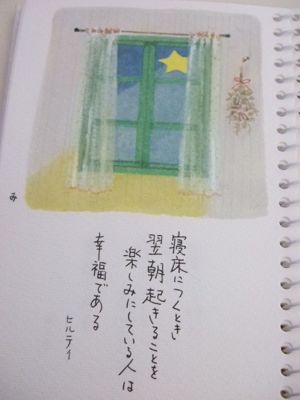 寝床につくとき
翌朝起きることを
楽しみにしている人は
幸福である
ヒルティ
み